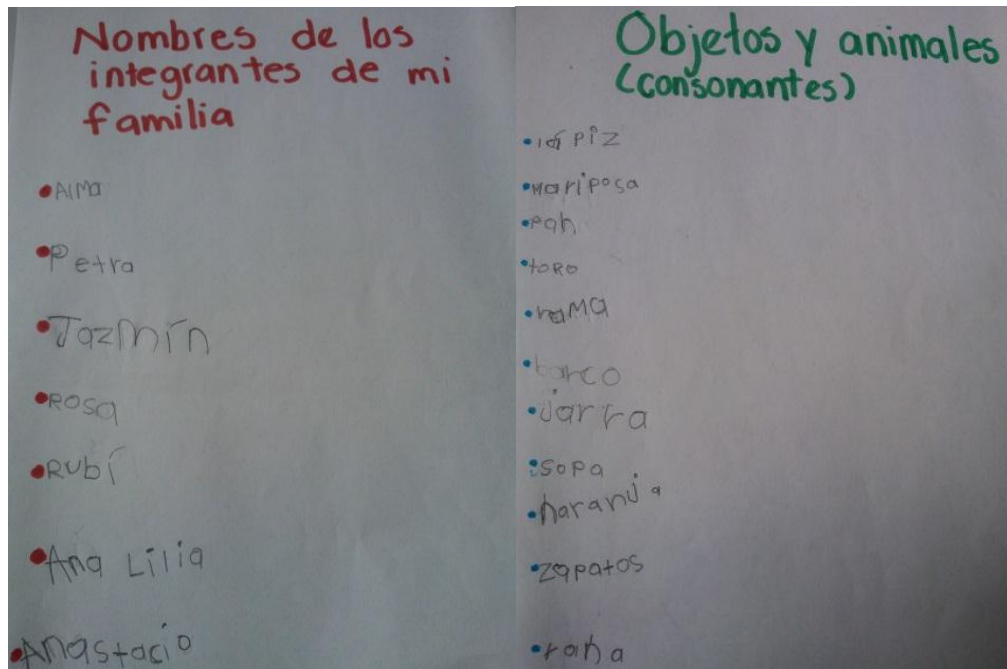 Nombres de los
integrantes de mi
familia
Alma
Petra
Jazmín
Rosa
Rubí
Ana Lilia
Anastacio
Objetos y animales
(consonantes)
lápiz
mariposa
pan
toro
rama
barco
jarra
sopa
naranja
zapatos
rana